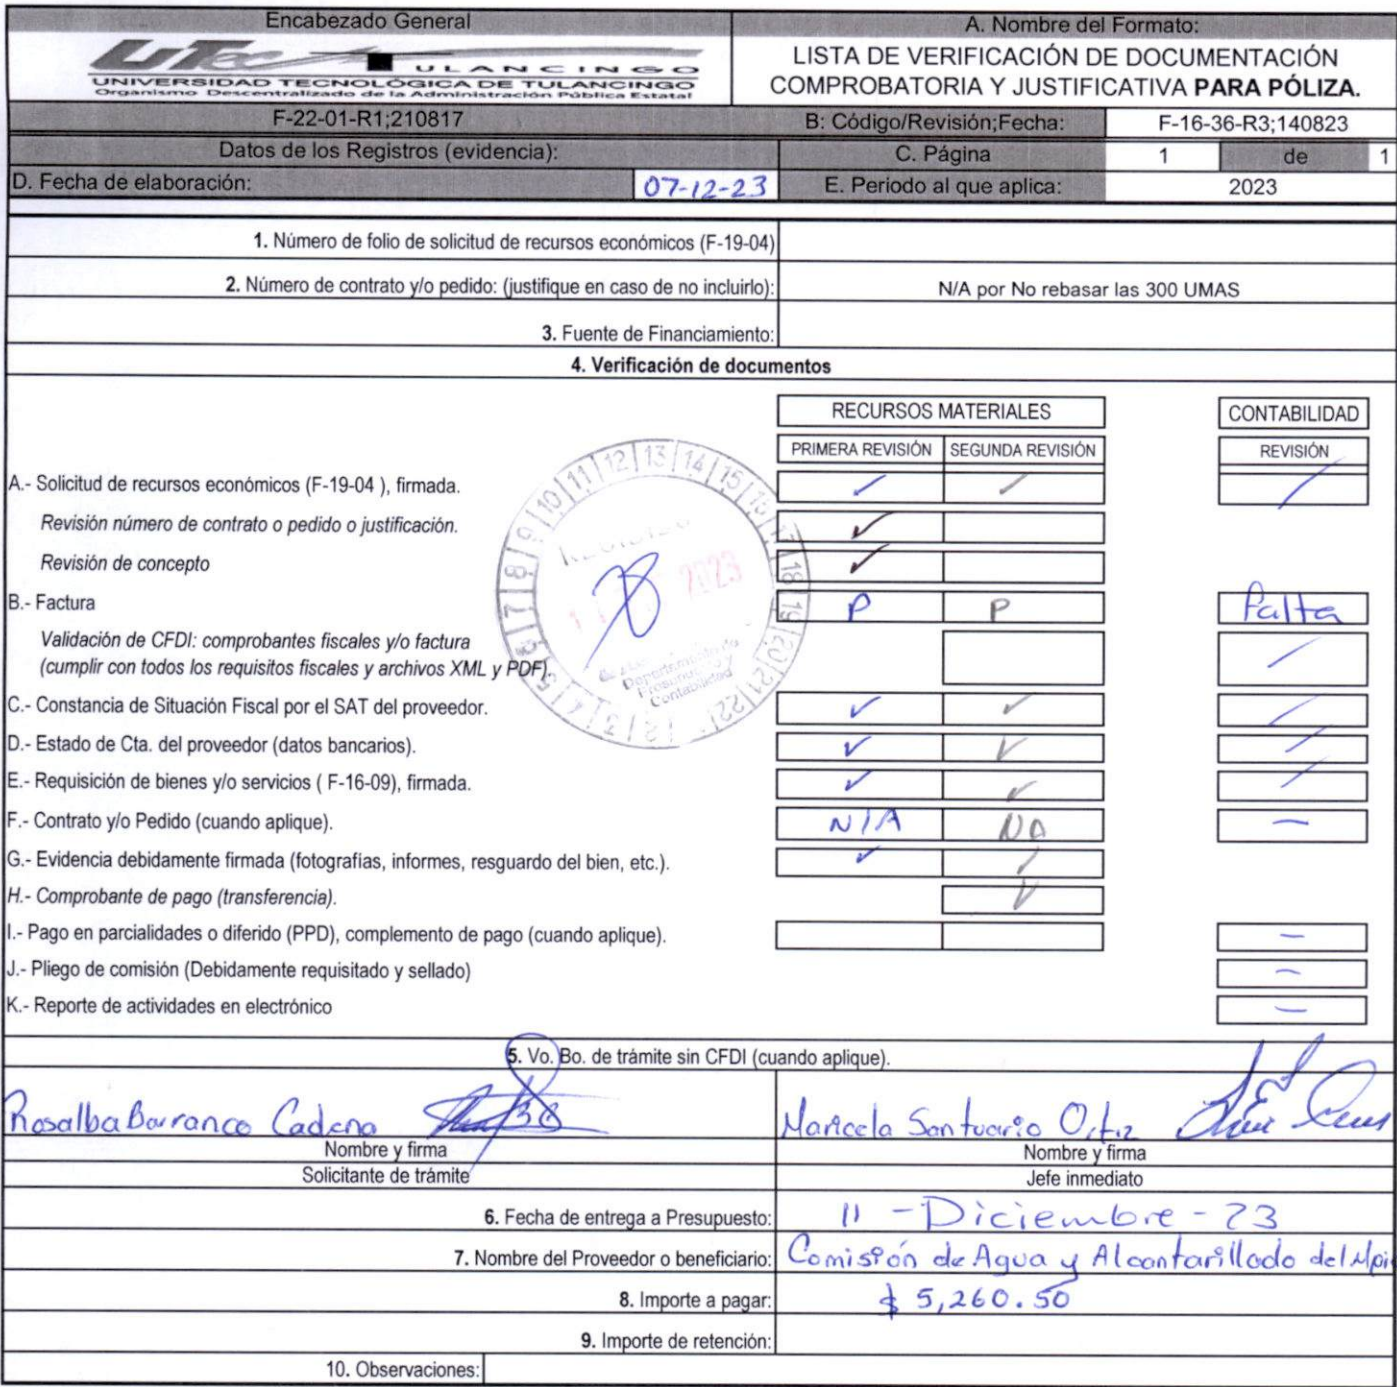 Encabezado General
A. Nombre del Formato:
UTec TULANCINGO
UNIVERSIDAD TECNOLÓGICA DE TULANCINGO
Organismo Descentralizado de la Administración Pública Estatal
LISTA DE VERIFICACIÓN DE DOCUMENTACIÓN
COMPROBATORIA Y JUSTIFICATIVA PARA PÓLIZA.
F-22-01-R1;210817
B: Código/Revisión;Fecha:
F-16-36-R3;140823
Datos de los Registros (evidencia):
C. Página
1 de 1
D. Fecha de elaboración:
07-12-23
E. Periodo al que aplica:
2023
1. Número de folio de solicitud de recursos económicos (F-19-04)
2. Número de contrato y/o pedido: (justifique en caso de no incluirlo):
N/A por No rebasar las 300 UMAS
3. Fuente de Financiamiento:
4. Verificación de documentos
RECURSOS MATERIALES
CONTABILIDAD
PRIMERA REVISIÓN
SEGUNDA REVISIÓN
REVISIÓN
A.- Solicitud de recursos económicos (F-19-04 ), firmada.
Revisión número de contrato o pedido o justificación.
Revisión de concepto
B.- Factura
P
P
Falta
Validación de CFDI: comprobantes fiscales y/o factura
(cumplir con todos los requisitos fiscales y archivos XML y PDF).
C.- Constancia de Situación Fiscal por el SAT del proveedor.
D.- Estado de Cta. del proveedor (datos bancarios).
E.- Requisición de bienes y/o servicios ( F-16-09), firmada.
F.- Contrato y/o Pedido (cuando aplique).
N/A
NA
G.- Evidencia debidamente firmada (fotografías, informes, resguardo del bien, etc.).
H.- Comprobante de pago (transferencia).
I.- Pago en parcialidades o diferido (PPD), complemento de pago (cuando aplique).
J.- Pliego de comisión (Debidamente requisitado y sellado)
K.- Reporte de actividades en electrónico
2023
Departamento de
Contabilidad
5. Vo. Bo. de trámite sin CFDI (cuando aplique).
Rosalba Barranco Cadena
Maricela Santuario Ortiz
Nombre y firma
Nombre y firma
Solicitante de trámite
Jefe inmediato
6. Fecha de entrega a Presupuesto:
11 - Diciembre - 23
7. Nombre del Proveedor o beneficiario:
Comisión de Agua y Alcantarillado del Mpio
8. Importe a pagar:
$ 5,260.50
9. Importe de retención:
10. Observaciones: